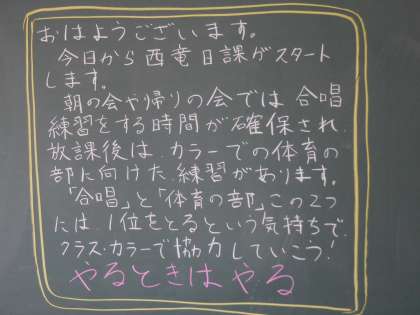 おはようございます。
今日から西竜日課がスタート
します。
朝の会や帰りの会では合唱
練習をする時間が確保され、
放課後は、カラーでの体育の
部に向けた練習があります。
「合唱」と「体育の部」この2つ
には、1位をとるという気持ちで、
クラス・カラーで協力していこう!
やるときはやる